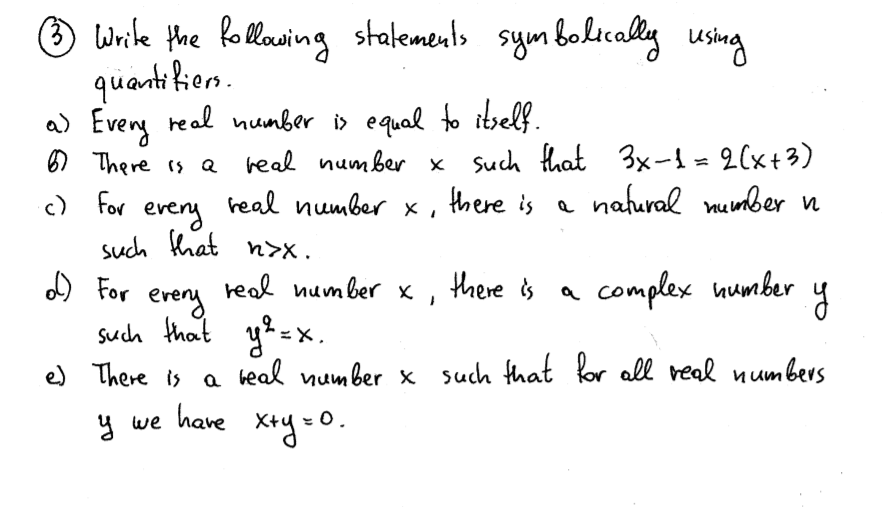 ③ Write the following statements symbolically using
quantifiers.
a) Every real number is equal to itself.
b) There is a real number x such that 3x-1 = 2(x+3)
c) For every real number x, there is a natural number n
such that n>x.
d) For every real number x, there is a complex number y
such that y²=x.
e) There is a real number x such that for all real numbers
y we have x+y=0.